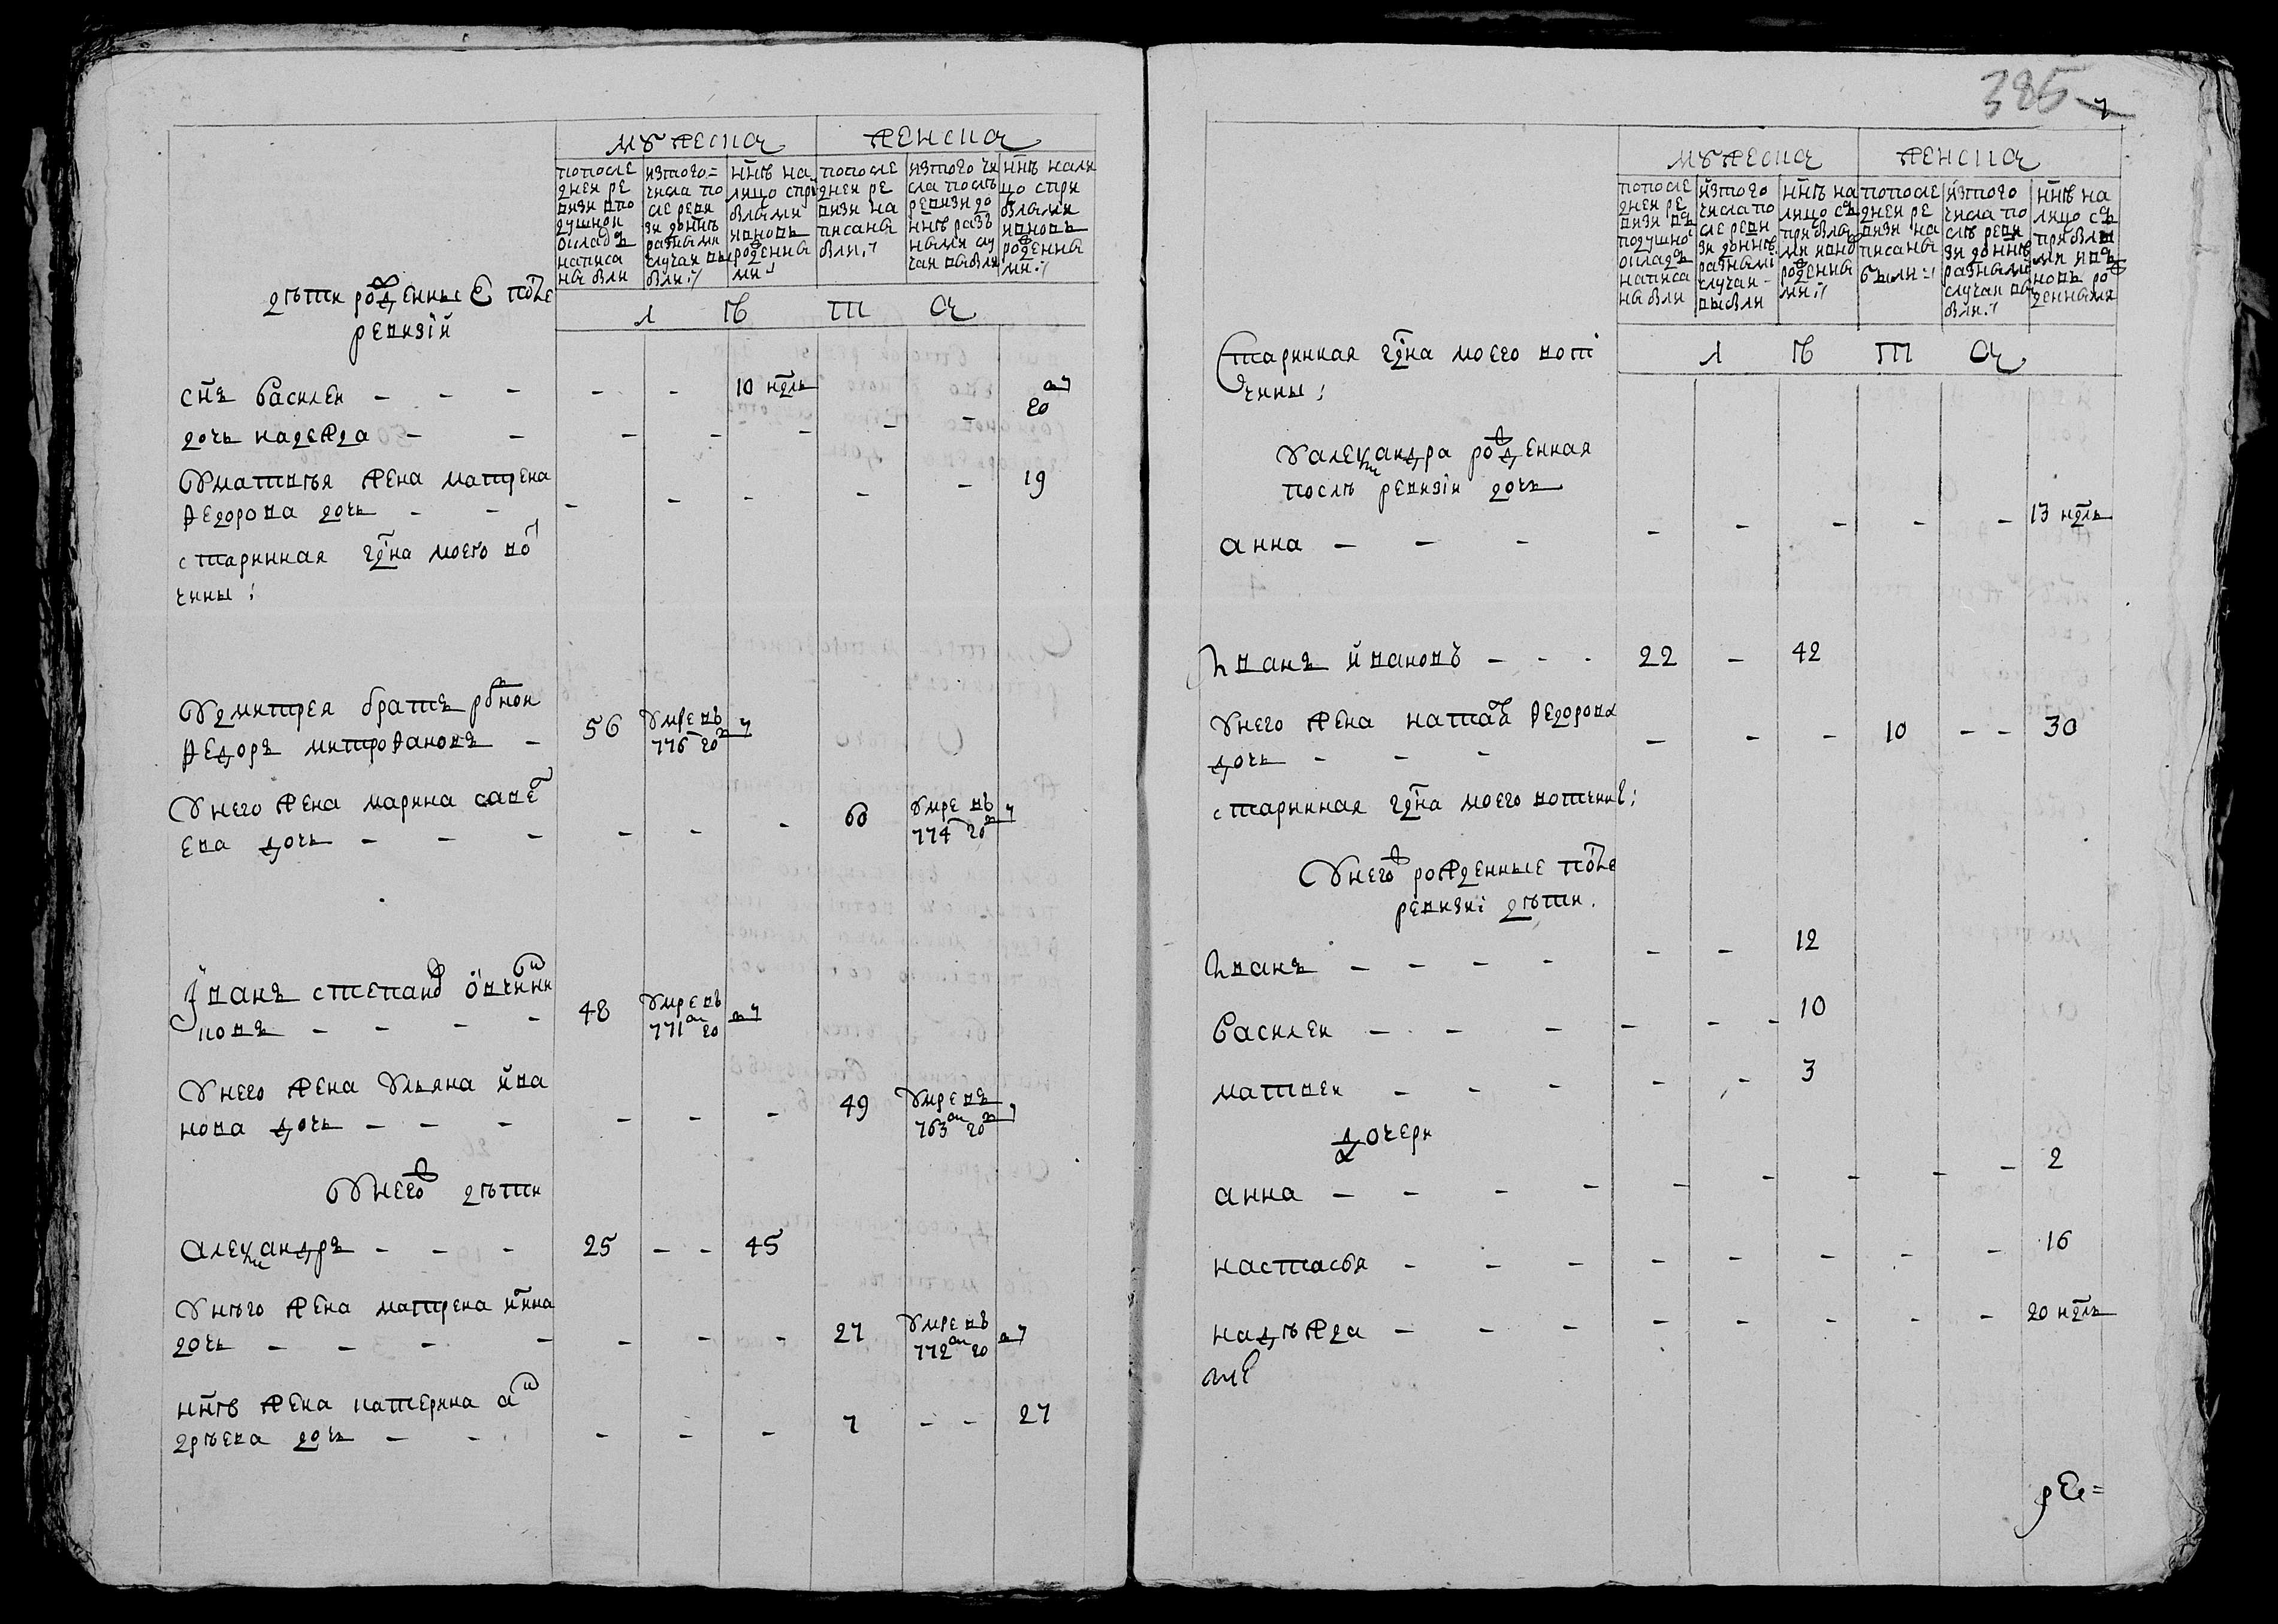 мужеска
женска
попосле
дней ре
визи впо
душной
окладъ
написа
ны были
изтого
числа по
сле реви
зи донне
разными
случаи вы
были
нне на
лицо спри
былыми
ивновь
рожденны
ми
попосле
дней ре
визи на
писаны
были
изтого чи
сла послѣ
ревизи до
ннѣ раз
ными слу
чаи выбыли
ннѣ нали
цо спри
былыми
ивновь
рожденны
ми
л ѣ т а
дѣти рожденные после
ревизіи
снъ василеи - - - - - 10 ндль
дочь надежда - - - - - - - 20
Уматвѣя жена матрена
федорова дочь - - - - - - - 19
старинная тдна моего вот
чины
Удмитрея братъ родной
федоръ митрофановъ - 56 умревъ 776 го
Унего жена марина савел
ева дочь - - - - - - 60 умре въ 774 го
Іванъ степановъ овчинни
ковъ - - - - 48 умре въ 771 го
Унего жена ульяна ива
нова дочь - - - - - - 49 умре въ 763 го
Унего дѣти
александръ - - - 25 - - 45
Унѣго жена матрена ивнна
дочь - - - - - - - 27 умре въ 772 го
ннѣ жена катерина ан
дрѣева дочь - - - - - 7 - - 27
385
7
мужеска
женска
попосле
дней ре
визи въ
подушно
окладъ
написа
ны были
изтого
числа по
сле реви
зи доннѣ
разными
случаи
выбыли
ннѣ на
лицо съ
прибылы
ми ивно
рожденны
ми
попосле
дней ре
визи на
писаны
были
изтого
числа по
слѣ реви
зи доннѣ
разными
случаи вы
были
ннѣ на
лицо съ
прибылы
ми ив
новь ро
жденными
л ѣ т а
Старинная тдна моего вот
чины
Уалександра рожденная
послѣ ревизіи дочь
анна - - - - - - - - 13 ндль
Иванъ ивановъ - - - 22 - 42
Унего жена наталя федорова
дочь - - - - - - 10 - - 30
старинная тдна моего вотчины
Унего рожденные после
ревизиі дѣти
Иванъ - - - - - - 12
Василеи - - - - - - 10
матвеи - - - - - 3
дочери
анна - - - - - - - - - 2
настасья - - - - - - - - 16
надѣжда - - - - - - - - 20 ндль
ре=